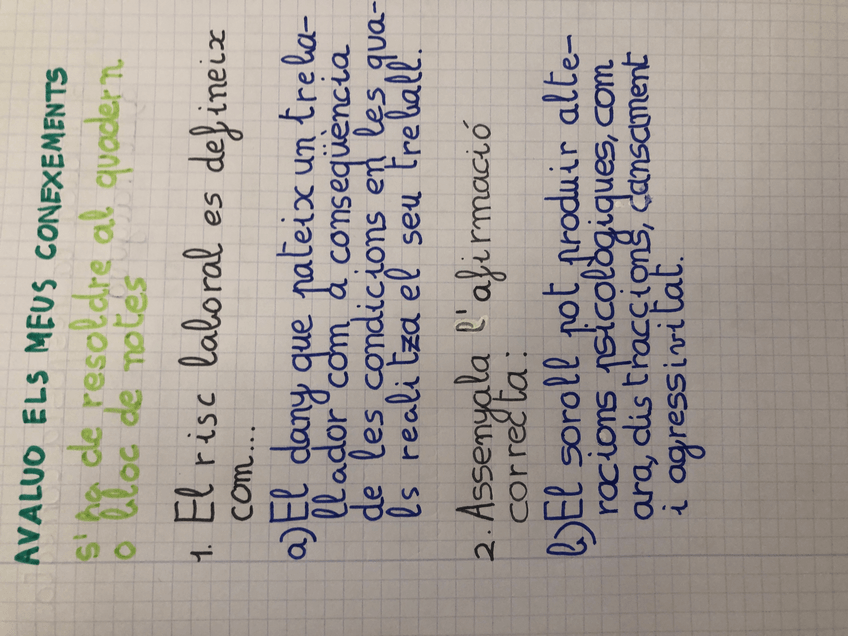 AVALUO ELS MEUS CONEXEMENTS
s'ha de resoldre al quadern
o bloc de notes
1. El risc laboral es defineix
com...
a) El dany que pateix un treba-
llador com a conseqüència
de les condicions en les qua-
ls realitza el seu treball.
2. Assenyala l'afirmació
correcta:
b) El soroll pot produir alte-
racions psicològiques, com
ara, distraccions, cansament
i agressivitat.